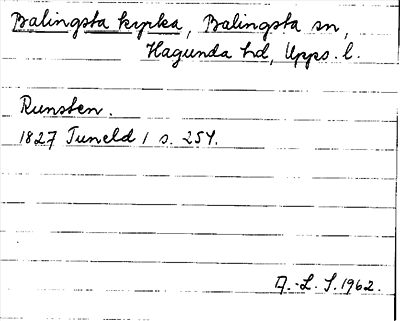 Balingsta kyrka, Balingsta sn,
Hagunda hd, Upps. l.
Runsten.
1827 Tuneld 1 s. 254.
A.-L. S. 1962.